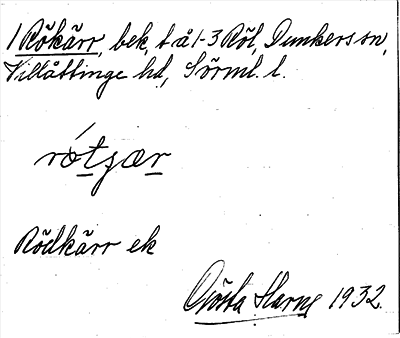 1 Rökärr, bek, t å 1-3 Röl, Dunkers sn,
Villåttinge hd, Sörml. l.
rótsær
Rödkärr ek
Gösta Harne 1932.